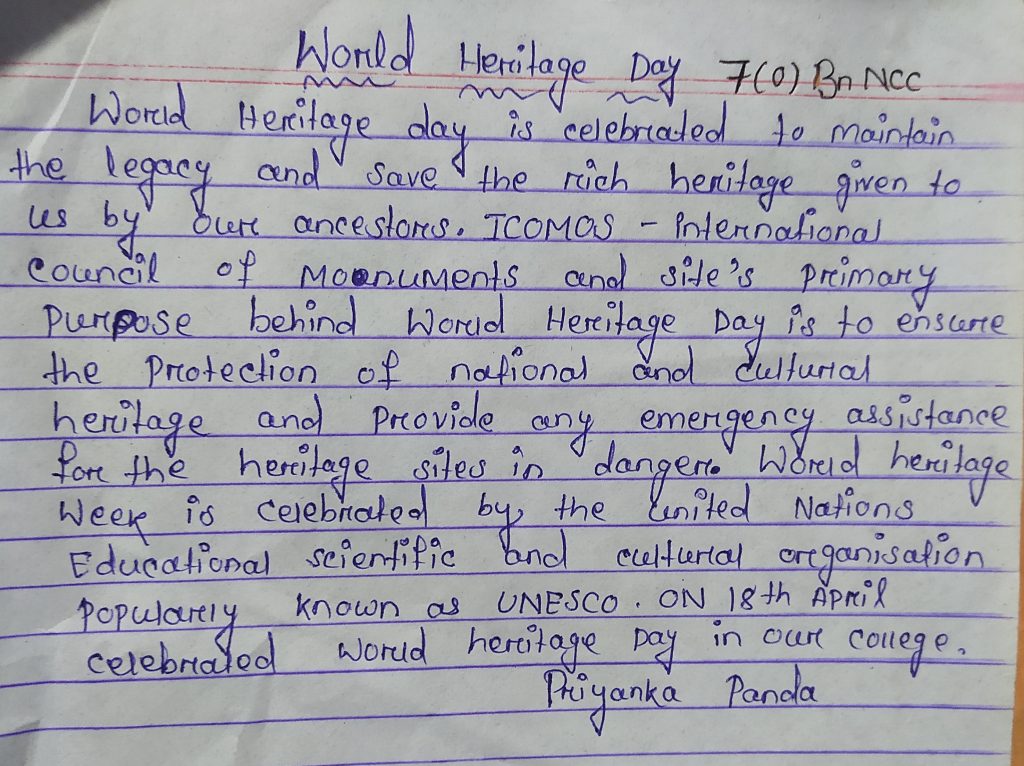 World Heritage Day 7(0) Bn NCC
World Heritage day is celebrated to maintain
the legacy and save the rich heritage given to
us by our ancestors. ICOMOS - International
council of Moonuments and site's primary
purpose behind World Heritage Day is to ensure
the Protection of national and cultural
heritage and Provide any emergency assistance
for the heritage sites in danger. World heritage
Week is celebrated by the United Nations
Educational scientific and cultural organisation
popularly known as UNESCO. ON 18th April
celebrated World heritage Day in our college.
Priyanka Panda